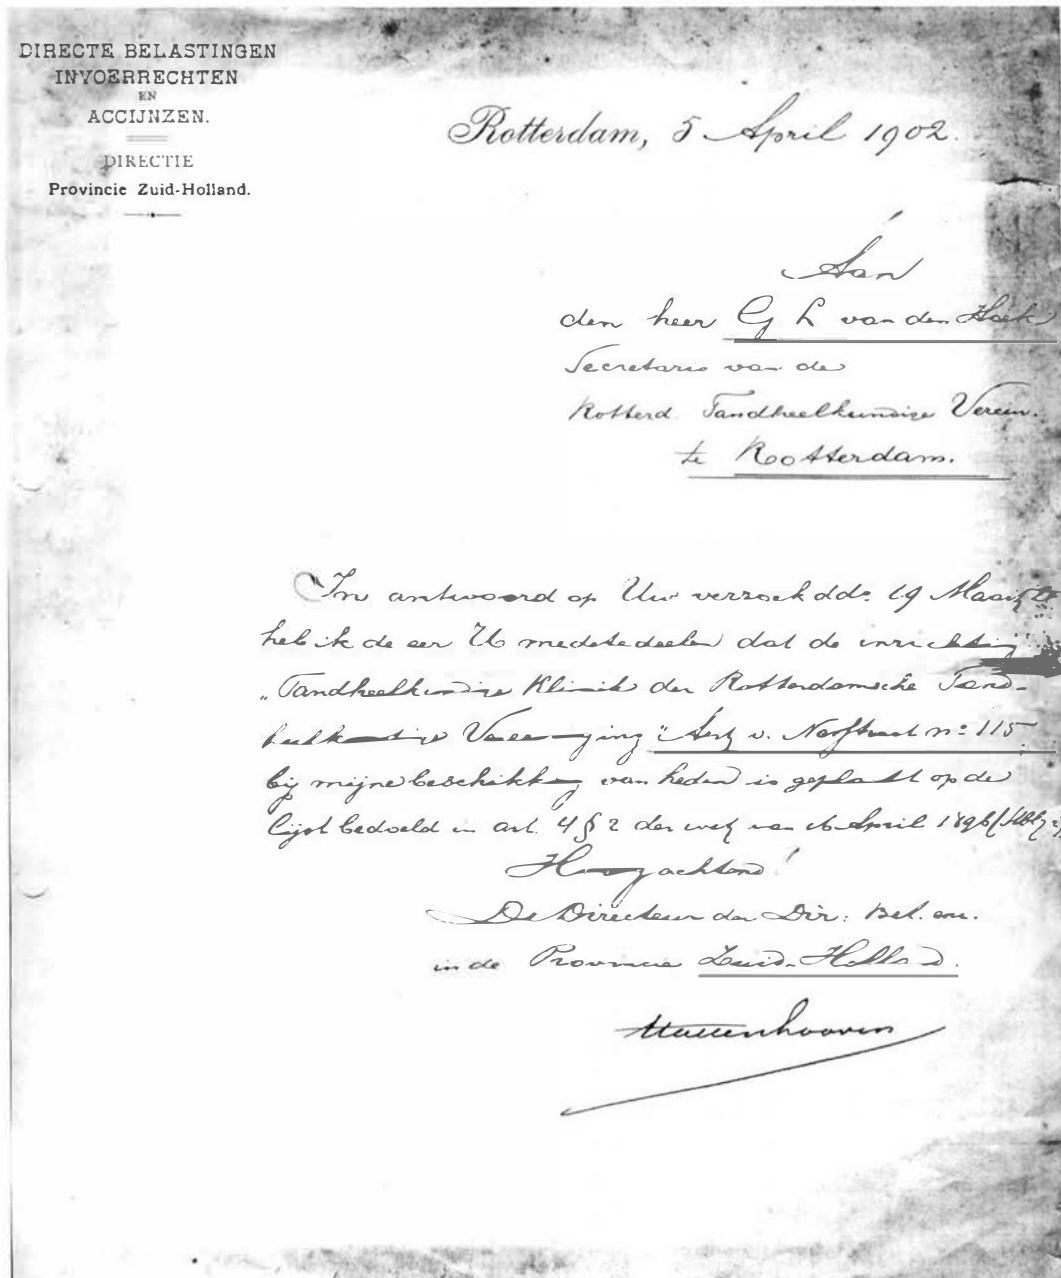 DIRECTE BELASTINGEN
INVOERRECHTEN
EN
ACCIJNZEN.
DIRECTIE
Provincie Zuid-Holland.
Rotterdam, 5 April 1902.
Aan
den heer G L van den Hoek
Secretaris van de
Rotterd. Tandheelkundige Vereen.
te Rotterdam.
In antwoord op Uw verzoek ddo 19 Maart
heb ik de eer U mede te deelen dat de inrichting
"Tandheelkundige Kliniek der Rotterdamsche Tand-
heelkundige Vereeniging" v. Nesstraat no 115
bij mijne beschikking van heden is geplaatst op de
lijst bedoeld in art. 4 § 2 der wet van 16 April 1896 (Stbl
Hoogachtend!
De Directeur der Dir: Bel. enz.
in de Provincie Zuid-Holland.